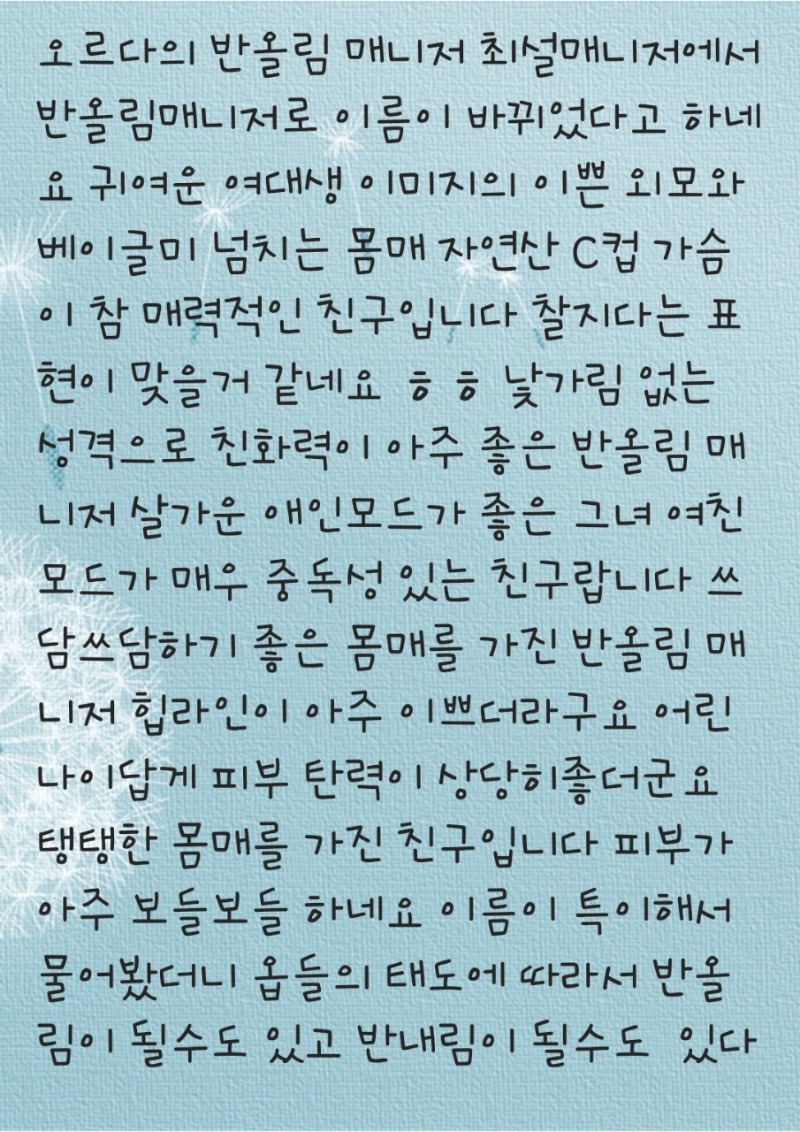 오르다의 반올림 매니저 최설매니저에서
반올림매니저로 이름이 바뀌었다고 하네
요 귀여운 여대생 이미지의 이쁜 외모와
베이글미 넘치는 몸매 자연산 C컵 가슴
이 참 매력적인 친구입니다 찰지다는 표
현이 맞을거 같네요 ㅎㅎ 낯가림 없는
성격으로 친화력이 아주 좋은 반올림 매
니저 살가운 애인모드가 좋은 그녀 여친
모드가 매우 중독성 있는 친구랍니다 쓰
담쓰담하기 좋은 몸매를 가진 반올림 매
니저 힙라인이 아주 이쁘더라구요 어린
나이답게 피부 탄력이 상당히좋더군요
탱탱한 몸매를 가진 친구입니다 피부가
아주 보들보들 하네요 이름이 특이해서
물어봤더니 옵들의 태도에 따라서 반올
림이 될수도 있고 반내림이 될수도 있다